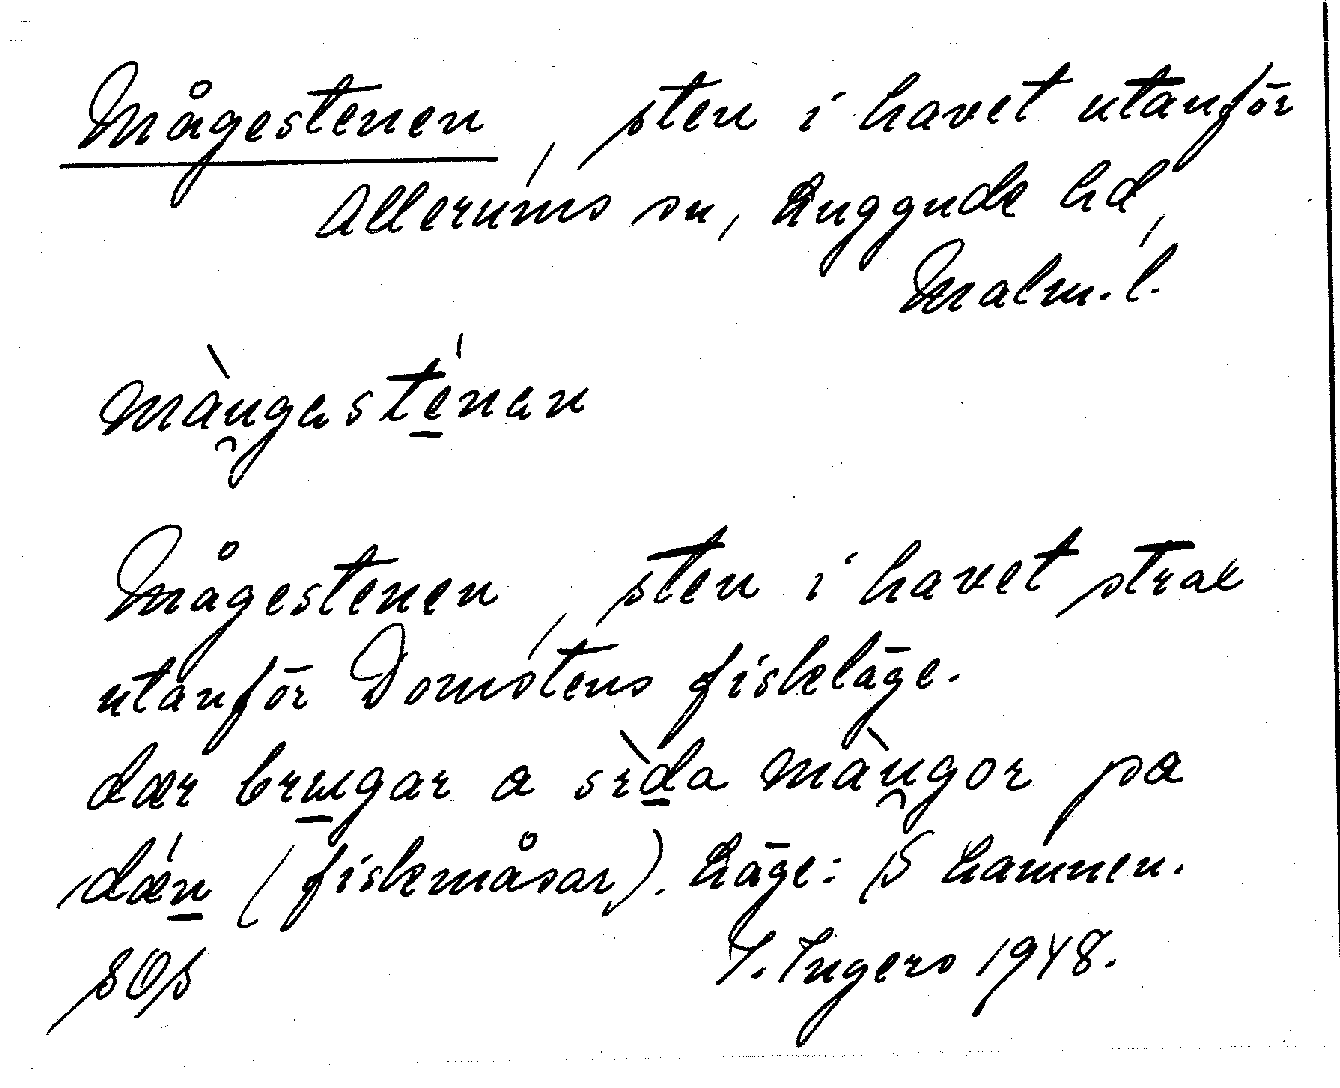 Mågestenen, sten i havet utanför
Allerums sn, Luggude hd,
Malm. l.
màu̯gasté̱nan
Mågestenen, sten i havet strax
utanför Domstens fiskeläge.
dær bru̱gar a sìḏa màu̯gor pa
dǽṉ (fiskemåsar). Läge: S hamnen.
SOS I. Ingers 1948.